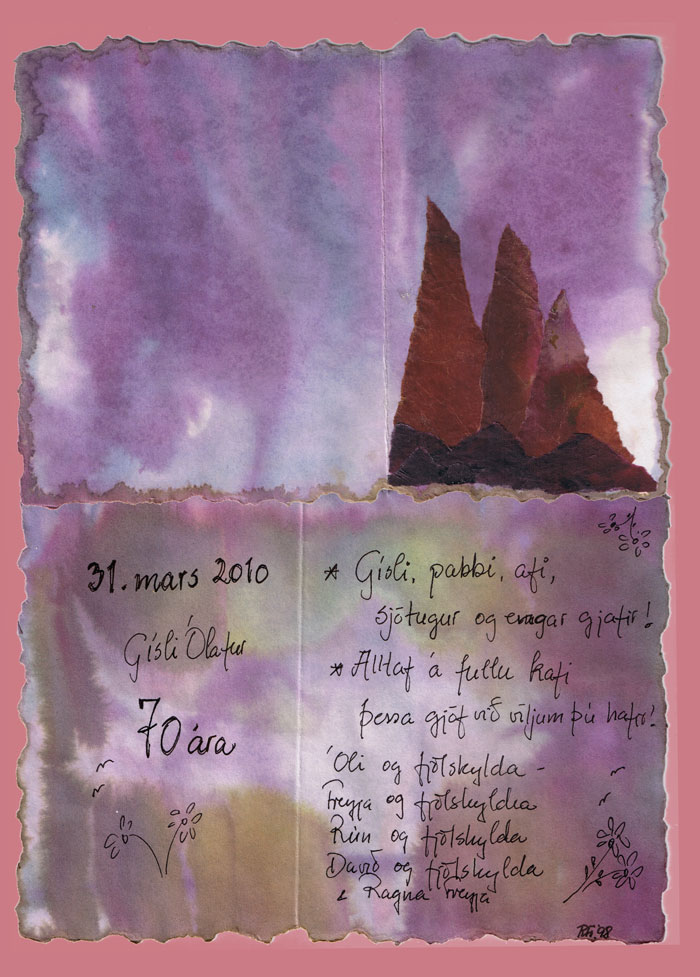 31. mars 2010
Gísli Ólafur
70 ára
* Gísli, pabbi, afi,
sjötugur og engar gjafir!
* Alltaf á fullu kafi
þessa gjöf við viljum þú hafir!
Óli og fjölskylda -
Freyja og fjölskylda
Rún og fjölskylda
Davíð og fjölskylda
& Ragna Freyja
'98